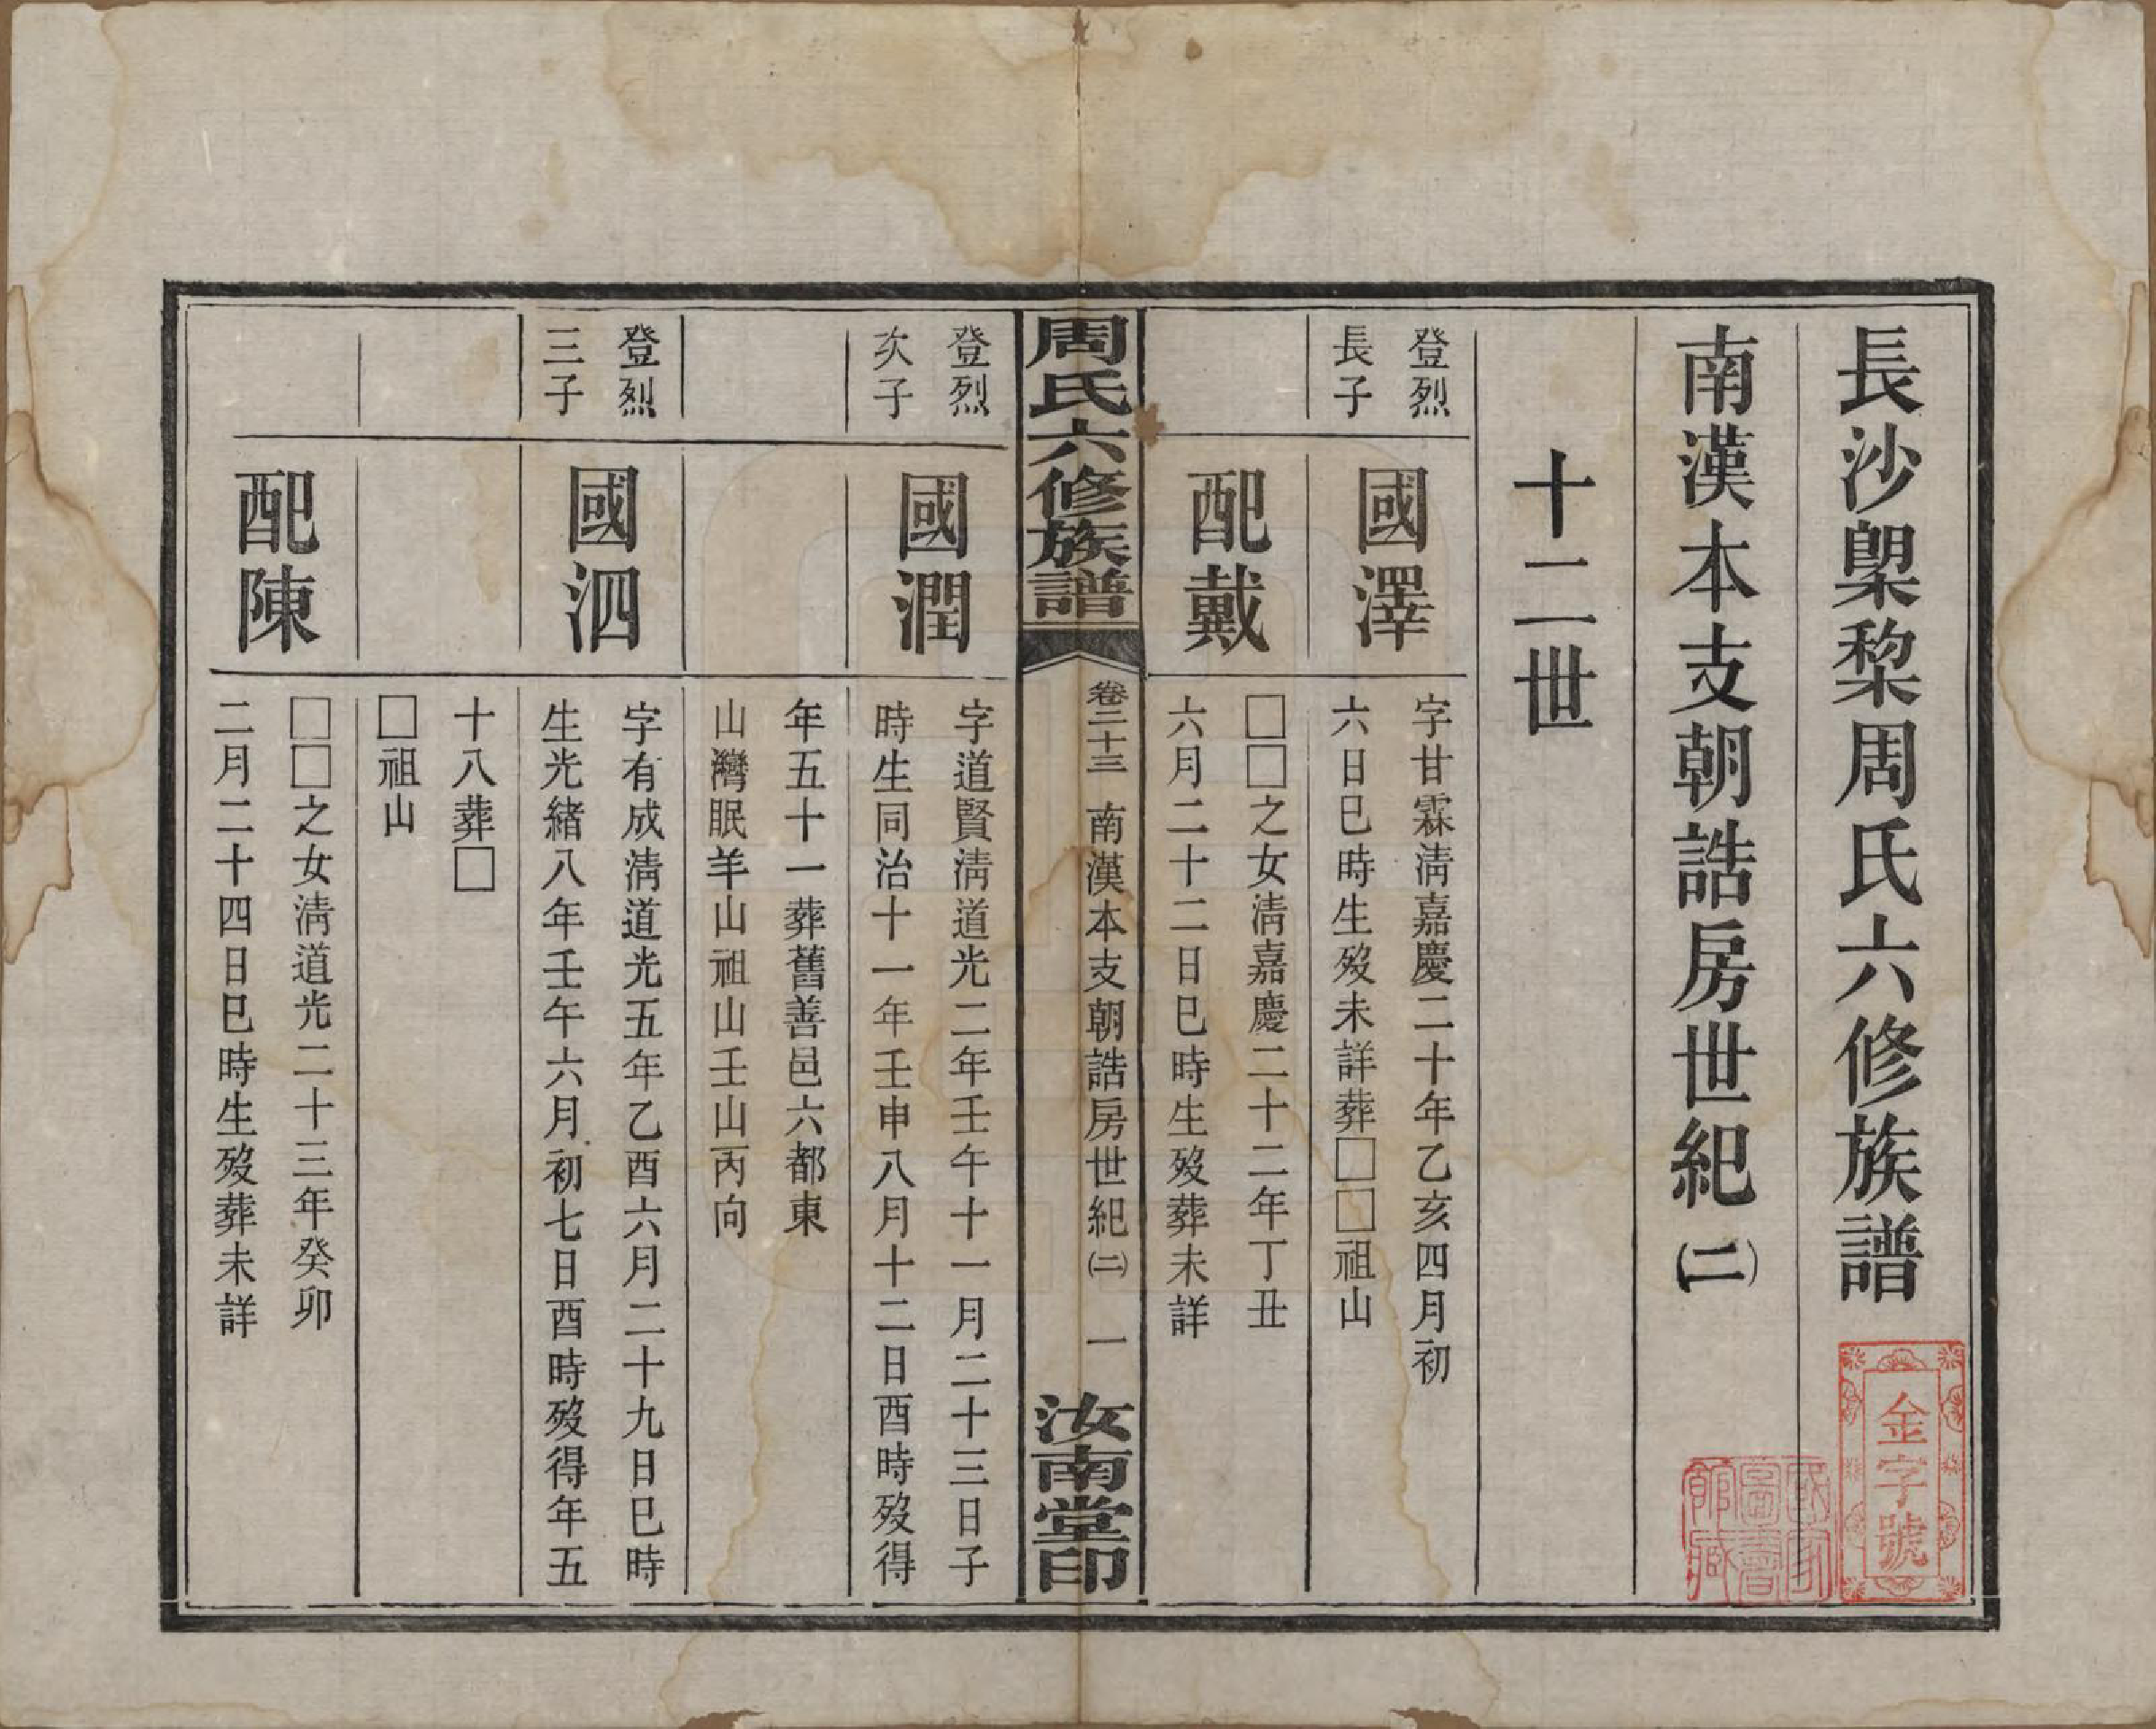 長沙㮚棃周氏六修族譜
南漢本支朝誥房世紀㈡
十二世
登烈
長子
國澤
字甘霖淸嘉慶二十年乙亥四月初
六日巳時生歿未詳葬□□祖山
配戴
□□之女淸嘉慶二十二年丁丑
六月二十二日巳時生歿葬未詳
周氏六修族譜
卷二十三
南漢本支朝誥房世紀㈡
一
汝南堂印
登烈
次子
國潤
字道賢淸道光二年壬午十一月二十三日子
時生同治十一年壬申八月十二日酉時歿得
年五十一葬舊善邑六都東
山灣眠羊山祖山壬山丙向
登烈
三子
國泗
字有成淸道光五年乙酉六月二十九日巳時
生光緒八年壬午六月初七日酉時歿得年五
十八葬□
□祖山
配陳
□□之女淸道光二十三年癸卯
二月二十四日巳時生歿葬未詳
金字號
國家
圖書
館藏